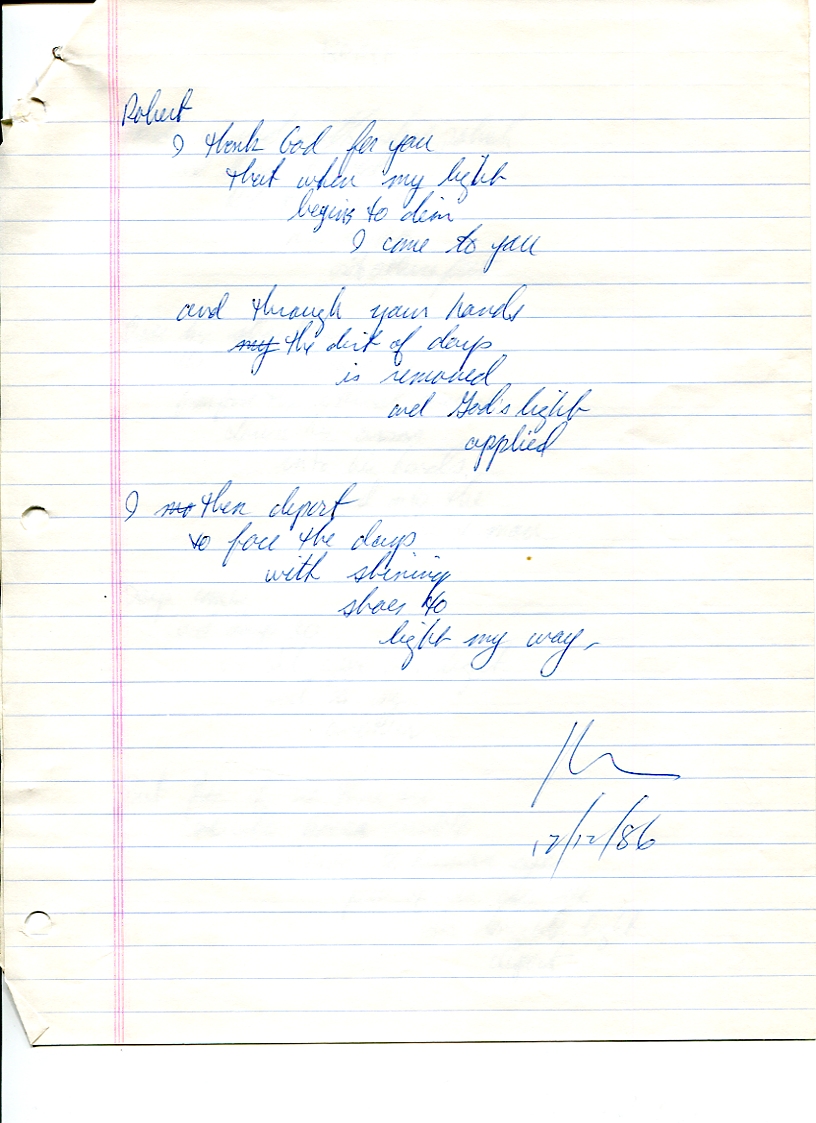 Robert
I thank God for you
that when my light
begins to dim
I come to you
and through your hands
my the dirt of days
is removed
and God's light
applied
I mo then depart
to face the days
with shining
shoes to
light my way.
12/12/86